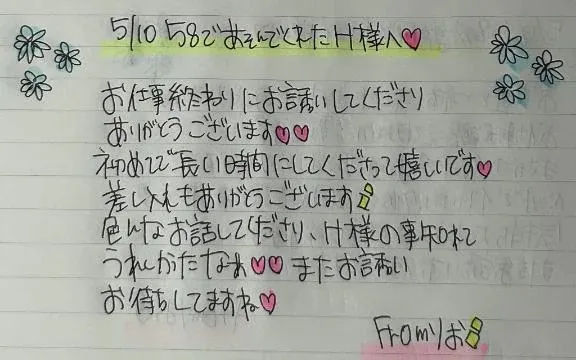 5/10 58であそんでくれたH様へ♡
お仕事終わりにお誘いしてくださり
ありがとうございます♡♡
初めてで長い時間にしてくださって嬉しいです♡
差し入れもありがとうございます
色んなお話してくださり、H様の事知れて
うれしかたなぁ♡♡ またお誘い
お待ちしてますね♡
Fromりお